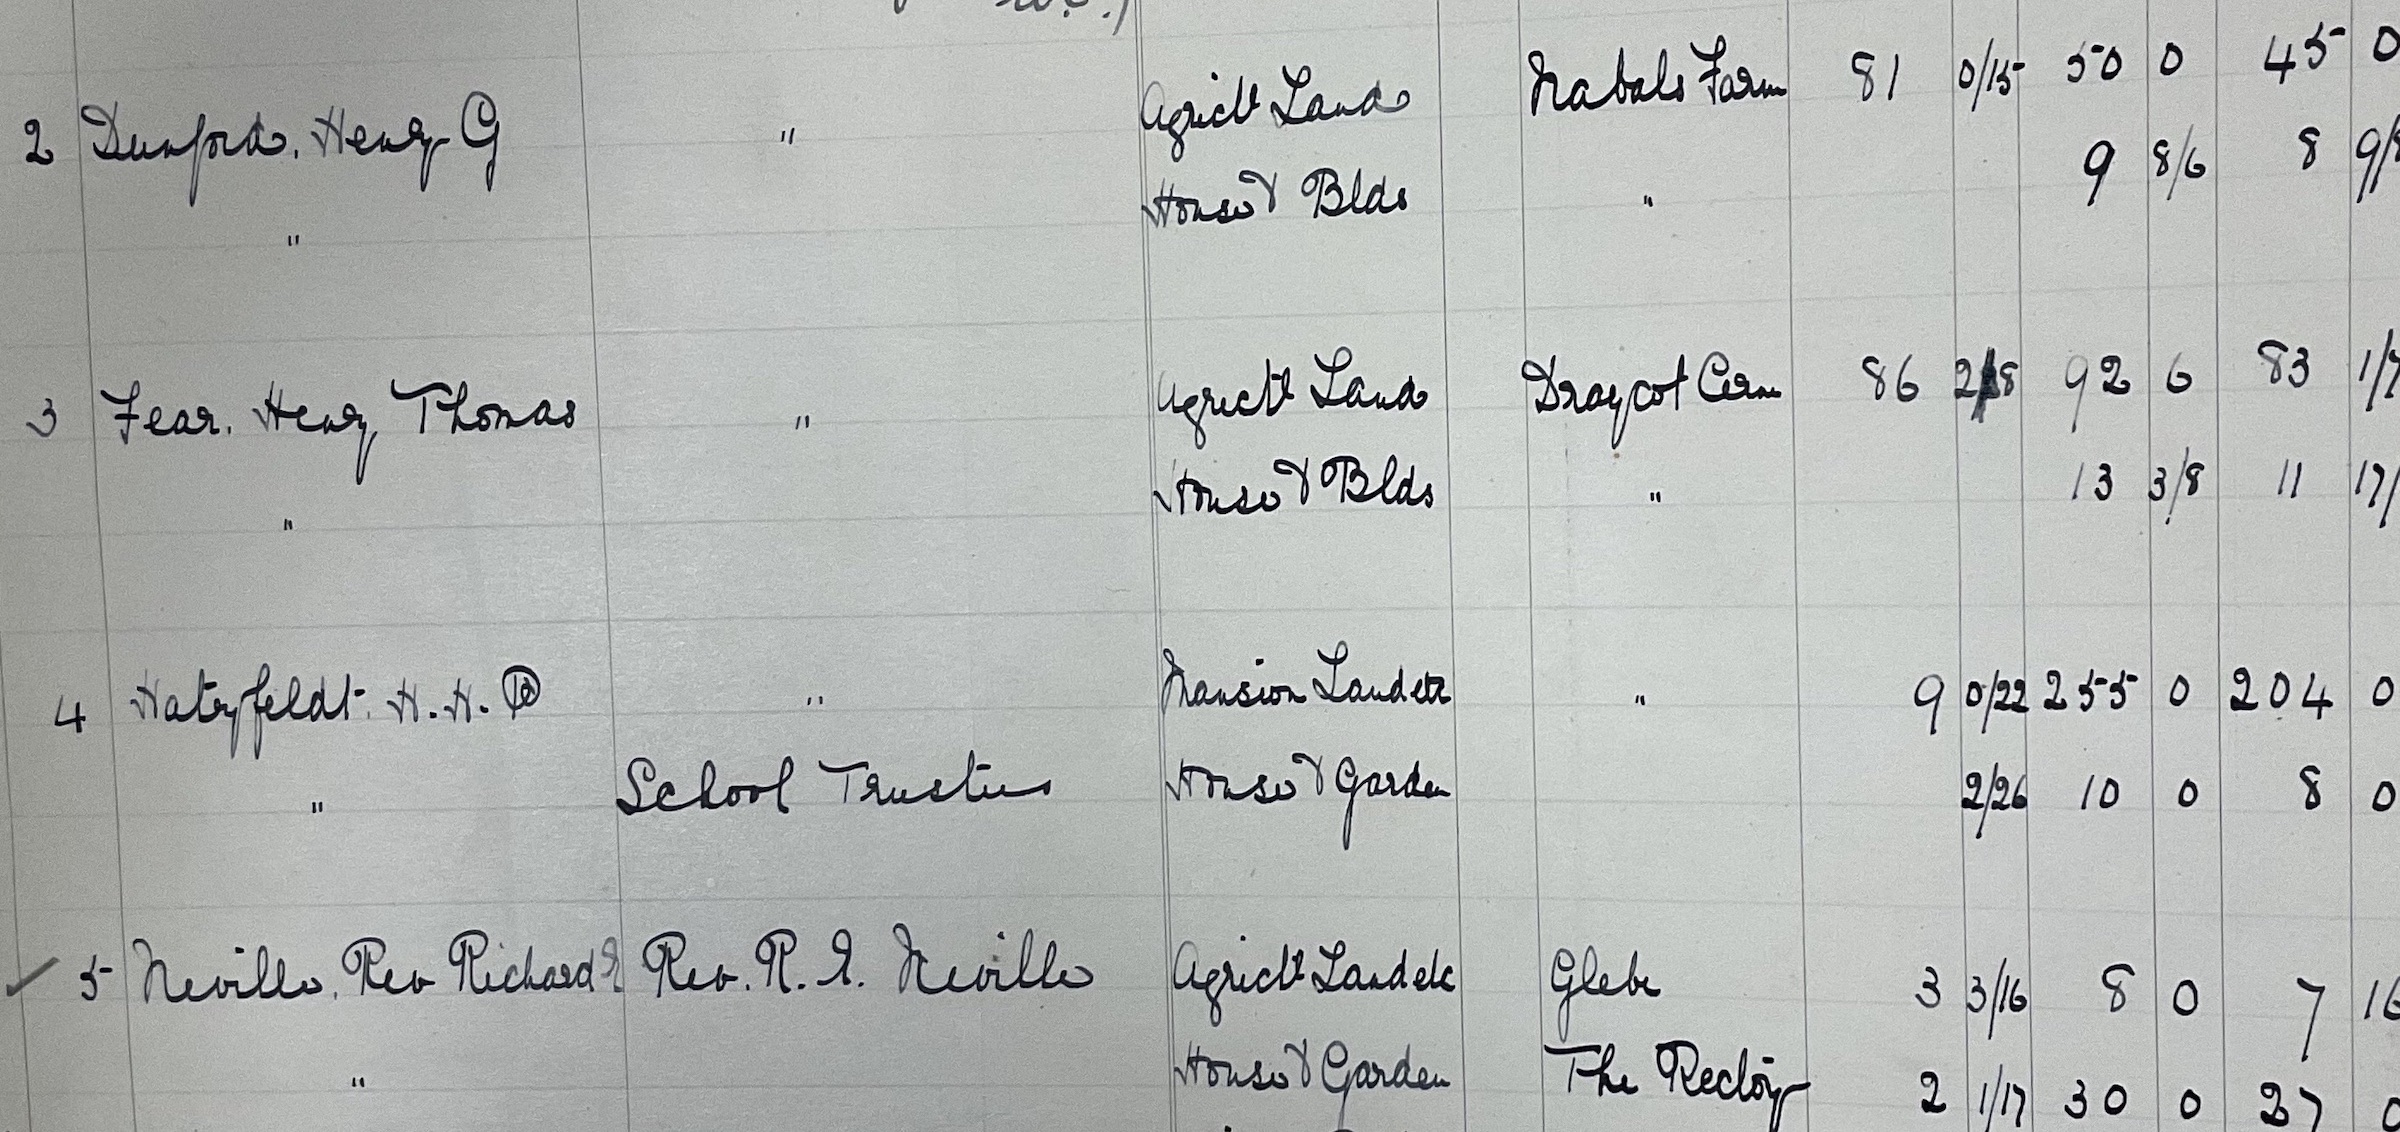 2 Dunford. Henry G " Agricl Land Nabals Farm 81 0/15 50 0 45 0
" House & Blds " 9 8/6 8 9/8
3 Fear. Henry Thomas " Agricl Land Draycot Cern 86 2/18 92 6 83 1/7
" House & Blds " 13 3/8 11 17/
4 Hatzfeldt. H. H. P " Mansion Land etc " 9 0/22 255 0 204 0
" School Trustees House & Garden 2/26 10 0 8 0
5 Neville. Rev Richard Rev. R. Neville Agricl Land etc Glebe 3 3/16 8 0 7 16
" House & Garden The Rectory 2 1/17 30 0 27 0